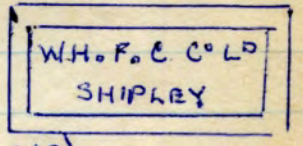 W.H.F.C. Cº Lᴰ
SHIPLEY